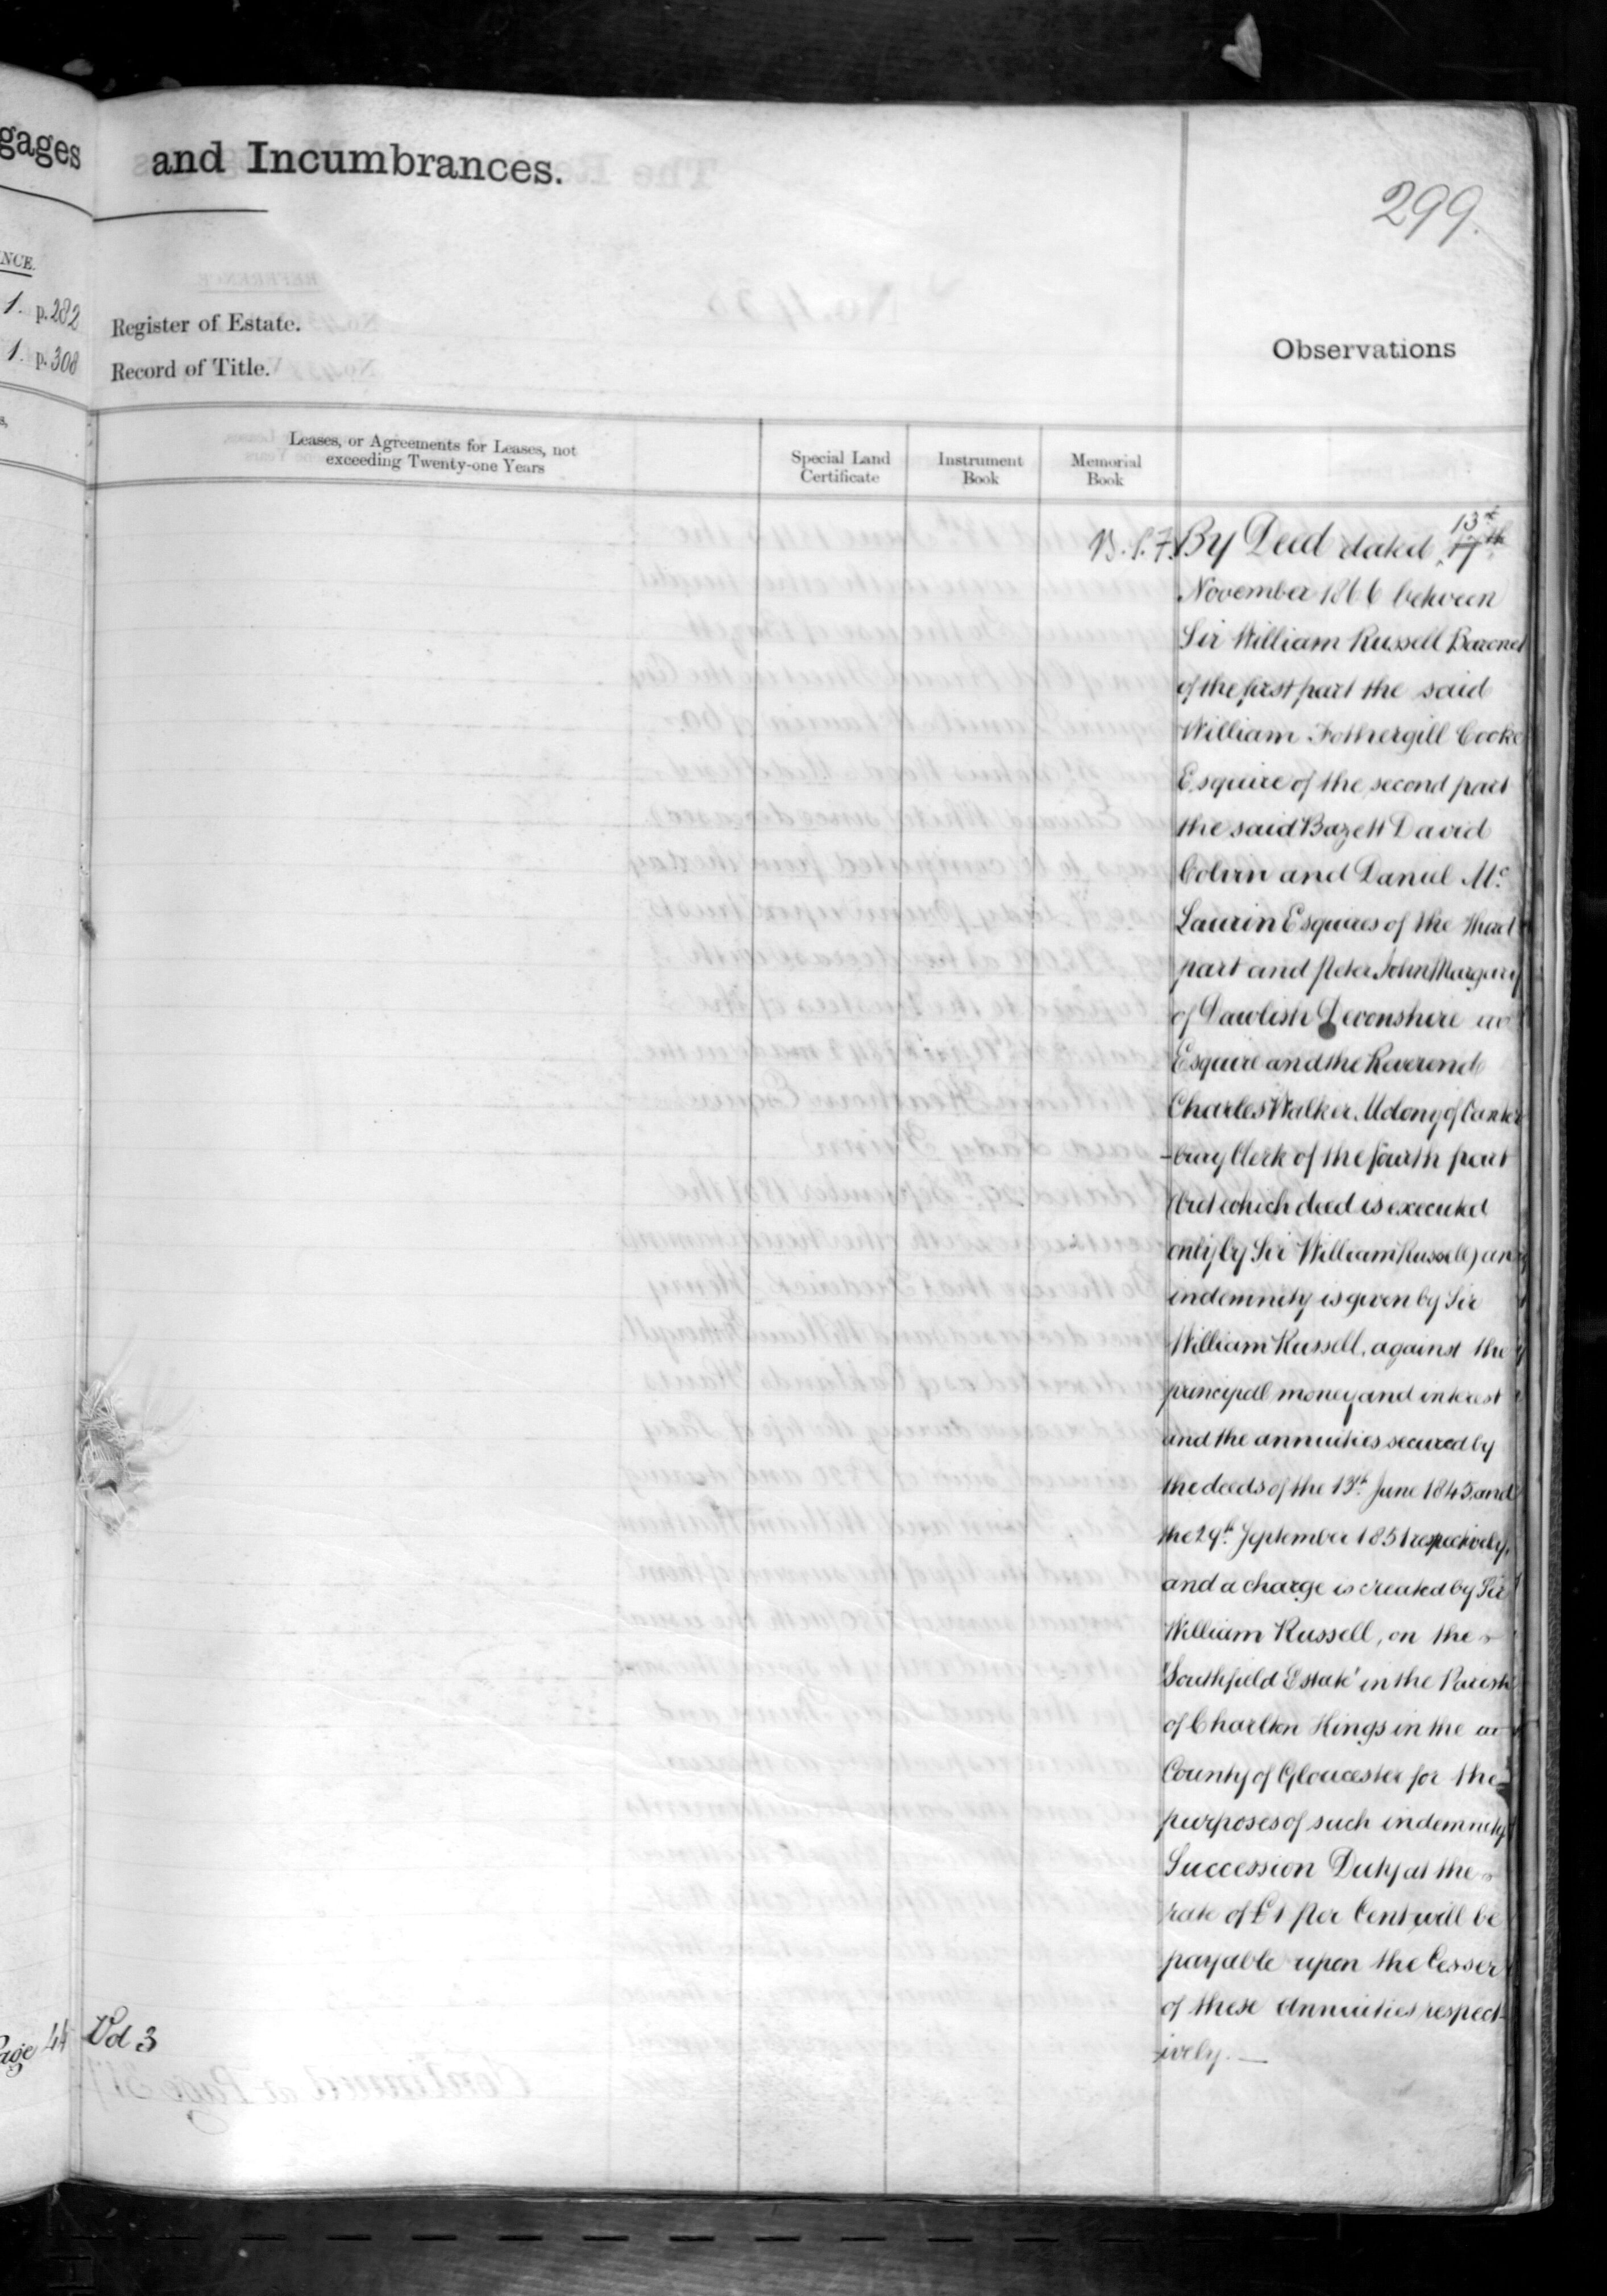 gages
and Incumbrances.
299.
NCE.
1. p. 282
Register of Estate.
1. p. 308
Record of Title.
Observations
Leases, or Agreements for Leases, not
exceeding Twenty-one Years
Special Land
Certificate
Instrument
Book
Memorial
Book
By Deed dated 17th 13th
November 1866 between
Sir William Russell Baronet
of the first part the said
William Fothergill Cooke
Esquire of the second part
the said Bazett David
Colvin and Daniel Mc
Laurin Esquires of the third
part and Peter John Margary
of Dawlish Devonshire
Esquire and the Reverend
Charles Walker Molony of Canter
-bury Clerk of the fourth part
which deed is executed
only by Sir William Russell) an
indemnity is given by Sir
William Russell, against the
principal money and interest
and the annuities secured by
the deeds of the 13th June 1845 and
the 29th September 1851 respectively,
and a charge is created by Sir
William Russell, on the
"Southfield Estate" in the Parish
of Charlton Kings in the
County of Gloucester for the
purposes of such indemnity
Succession Duty at the
rate of £1 per Cent will be
payable upon the Cesser
of these Annuities respect-
-ively. —
Page 44 Vol 3